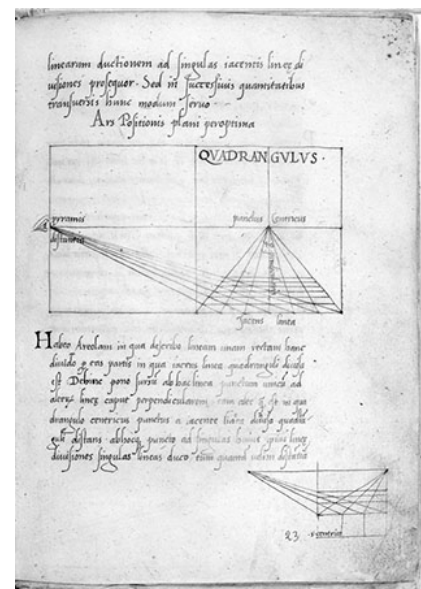 linearum ductionem ad singulas iacentis lineę di
uisiones prosequor. Sed in successiuis quantitatibus
transuersis hunc modum seruo
Ars Positionis plani peroptima
QVADRANGVLVS.
pyramis
distantię
punctus centricus
Jacens linea
Habeo Areolam in qua describo lineam unam rectam hanc
diuido p eas partis in qua iacens linea quadranguli diuisa
est Dehinc pono sursũ ab hac linea punctum unicũ ad
alterũ lineę caput perpendicularem
drangulo centricus punctus a iacente diuisa quadrã
guli distans ab hocq puncto ad singulas lineę
diuisiones singulas lineas duco
23
centricus